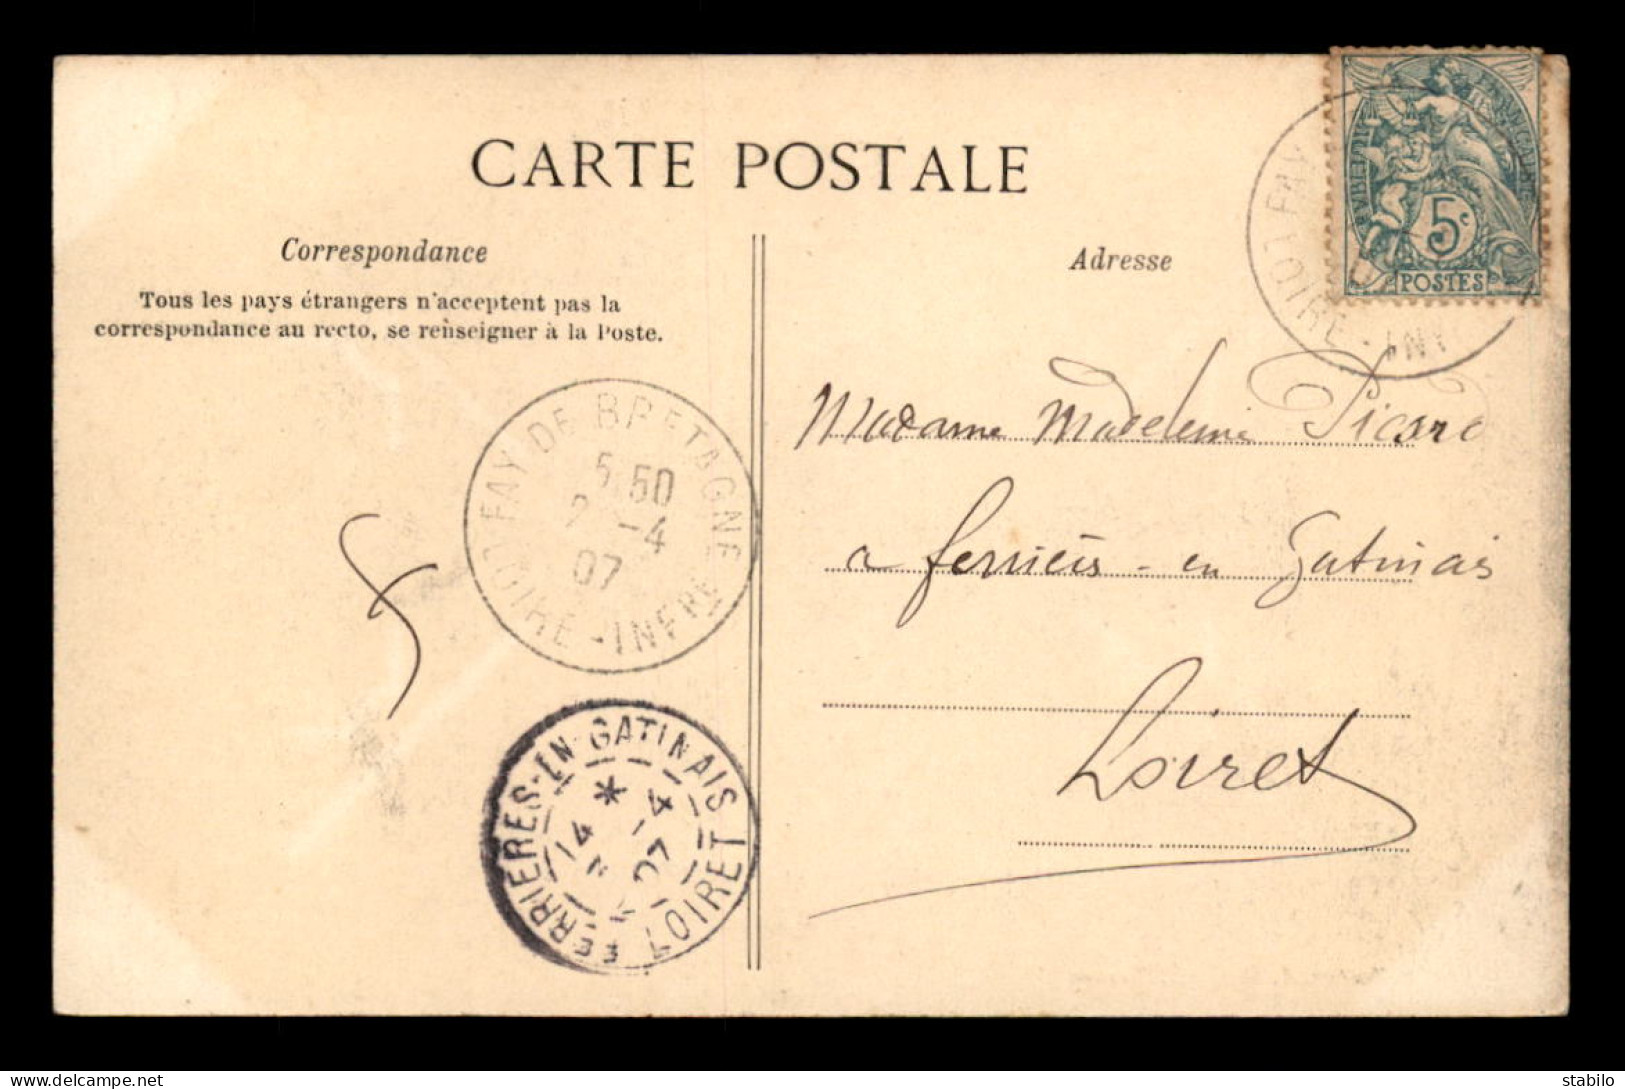 CARTE POSTALE
Correspondance
Tous les pays étrangers n'acceptent pas la
correspondance au recto, se renseigner à la Poste.
Adresse
5c
POSTES
FAY
LOIRE-INF
Madame Madeleine Picard
a ferrières - en Gatinais
Loiret
FAY DE BRETAGNE
5 50
2 -4
07
LOIRE-INFRE
FERRIERES-EN-GATINAIS
14 * -4
07
LOIRET
stabilo